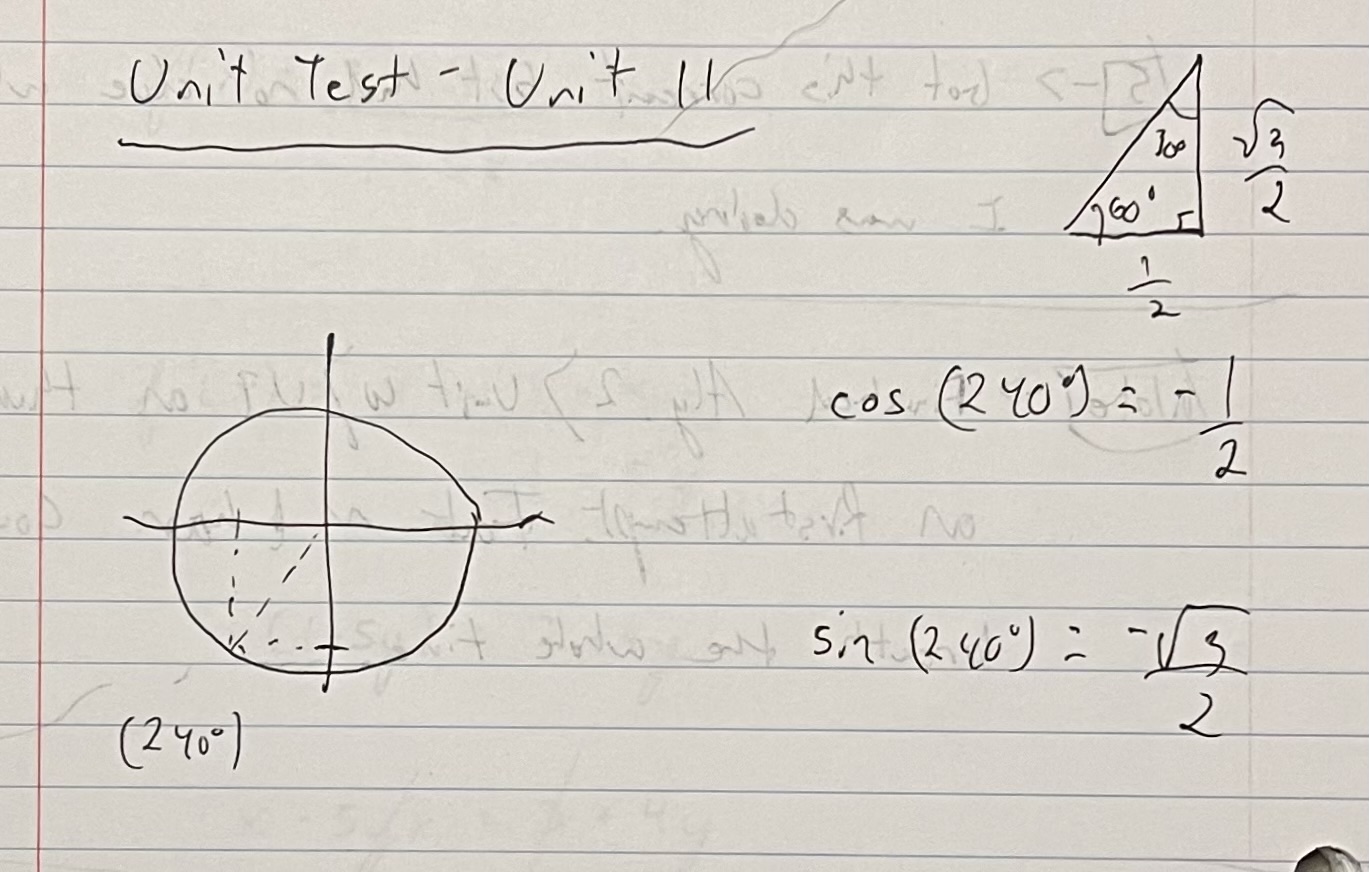 Unit Test - Unit 11
30°
√3/2
60°
1/2
cos (240°) = -1/2
sin (240°) = -√3/2
(240°)